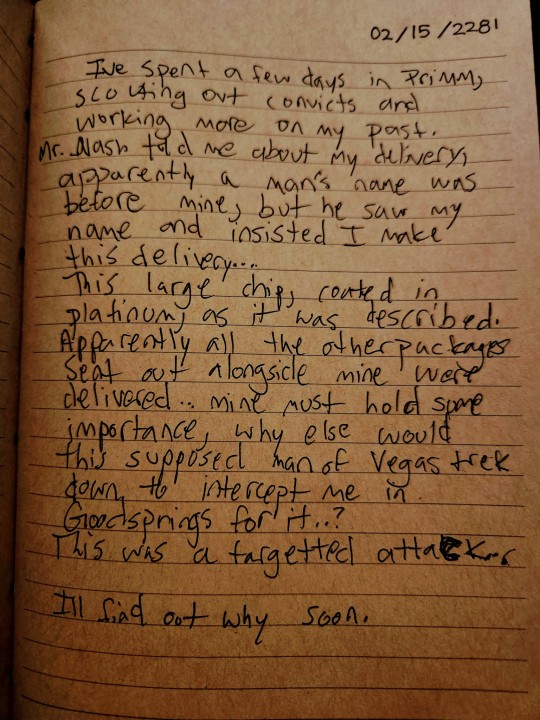 02/15/2281
I've spent a few days in Primm,
scouting out convicts and
working more on my past.
Mr. Nash told me about my delivery,
apparently a man's name was
before mine, but he saw my
name and insisted I make
this delivery...
This large chip, coated in
platinum, as it was described.
Apparently all the other packages
sent out alongside mine were
delivered.. mine must hold some
importance, why else would
this supposed man of Vegas trek
down to intercept me in
Goodsprings for it..?
This was a targetted attack...
I'll find out why soon.